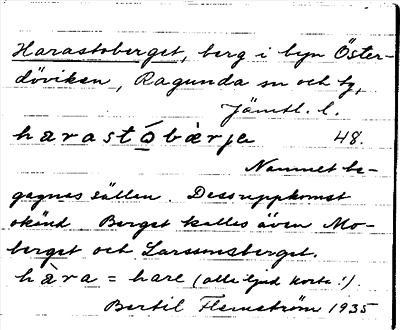 Harastoberget, berg i byn Öster-
döviken, Ragunda sn och tg,
Jämtl. l.
harastó̱bàrje 48.
Namnet be-
gagnas sällan. Dess uppkomst
okänd. Berget kallas även Mo-
berget och Larssonsberget.
hàra = hare (alla ljud korta!).
Bertil Flemström 1935